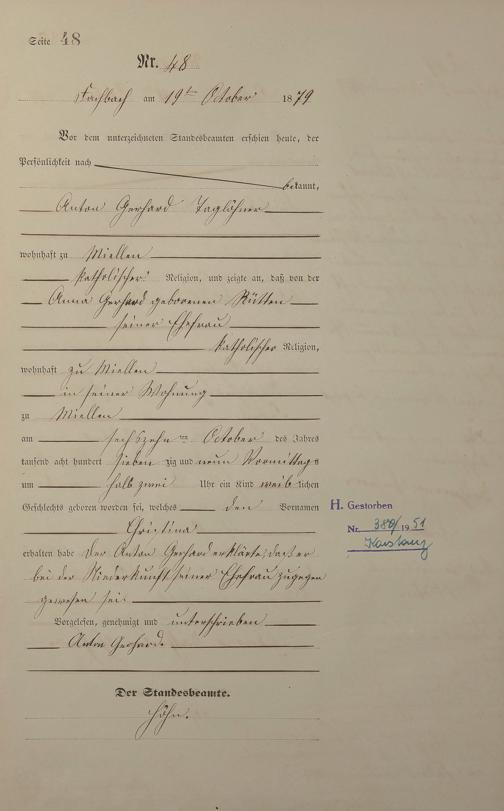 Seite 48
Nr. 48
Fachbach am 19ten October 1879
Vor dem unterzeichneten Standesbeamten erschien heute, der
Persönlichkeit nach
bekannt,
Anton Gerhard Taglöhner
wohnhaft zu Miellen
katholischer Religion, und zeigte an, daß von der
Anna Gerhard geborenen Kütten
seiner Ehefrau
katholischer Religion,
wohnhaft zu Miellen
in seiner Wohnung
zu Miellen
am sechszehnten October des Jahres
tausend acht hundert siebenzig und neun Vormittags
um halb zwei Uhr ein Kind weiblichen
Geschlechts geboren worden sei, welches den Vornamen
Christina
erhalten habe der Anton Gerhard erklärte, daß er
bei der Niederkunft seiner Ehefrau zugegen
gewesen sei.
Vorgelesen, genehmigt und unterschrieben
Anton Gerhard.
Der Standesbeamte.
Höhn.
H. Gestorben
Nr. 380/1951
Konstanz